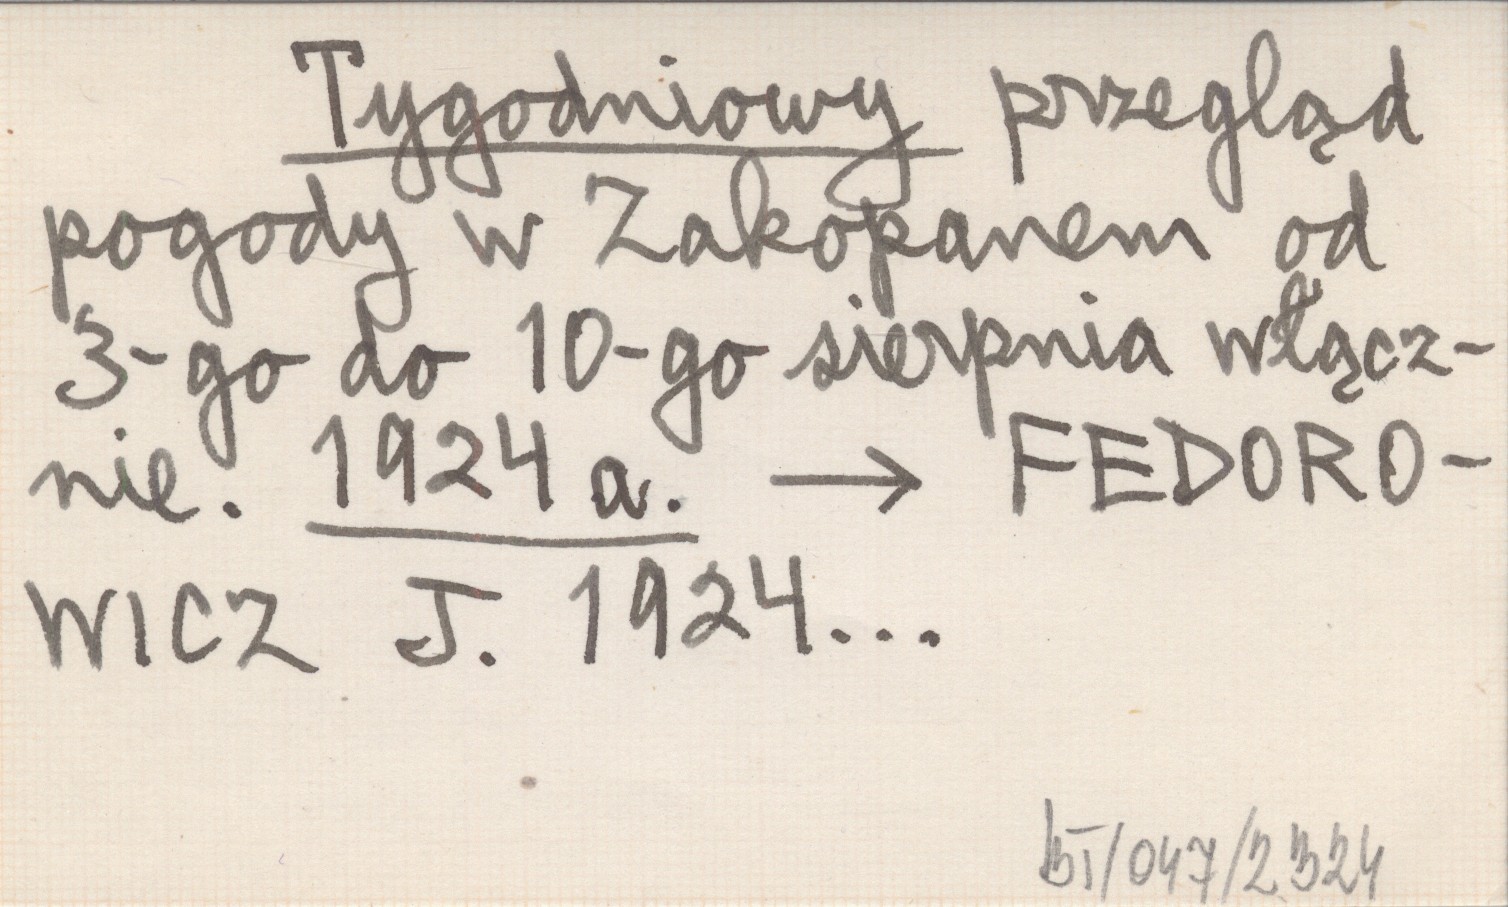 Tygodniowy przegląd
pogody w Zakopanem od
3-go do 10-go sierpnia włącz-
nie. 1924 a. → FEDORO-
WICZ J. 1924...
BI/047/2324